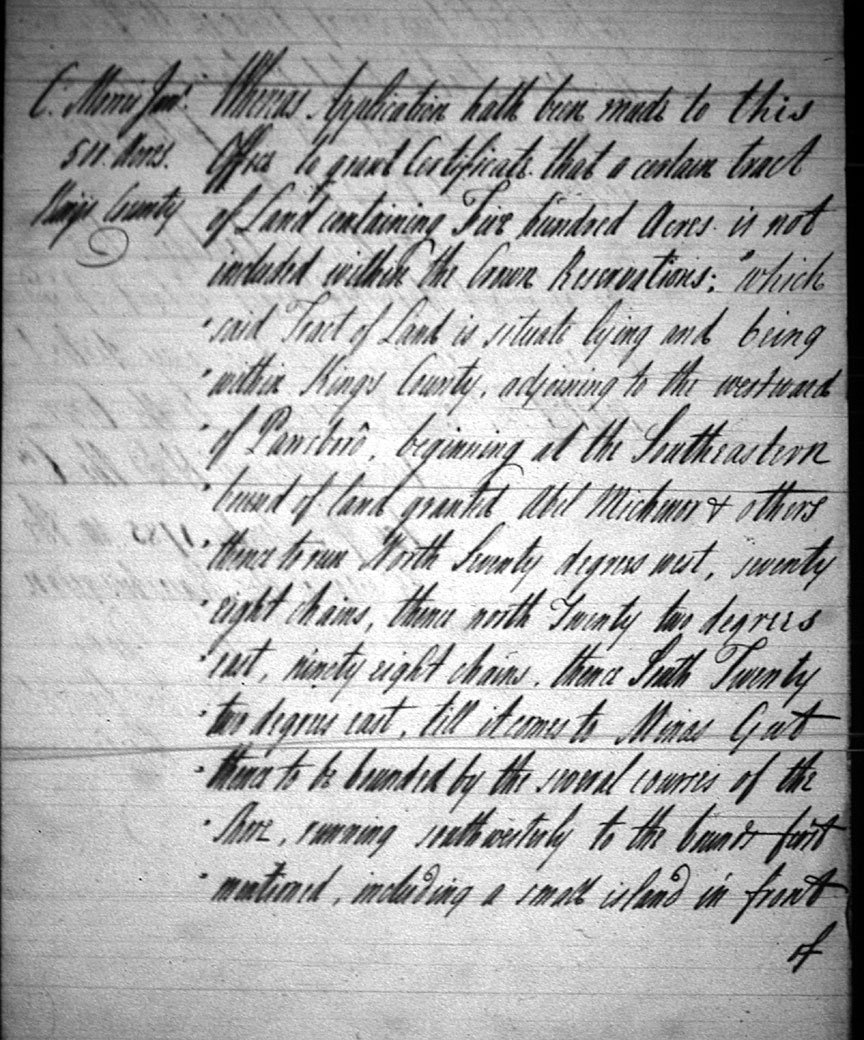 C. Morris Junr.
500 Acres.
Kings County
Whereas Application hath been made to this
Office to grant Certificate that a certain tract
of Land containing Five hundred Acres is not
included within the Crown Reservations; "which
"said Tract of Land is situate lying and being
"within Kings County, adjoining to the westward
"of Parrsboro, beginning at the Southeastern
"bound of land granted Abel Michener & others
"thence to run North Seventy degrees west, seventy
"eight chains, thence north Twenty two degrees
"east, ninety eight chains, thence South Twenty
"two degrees east, till it comes to Minas Gut
"thence to be bounded by the several courses of the
"Shore, running southwesterly to the bounds first
"mentioned, including a small island in front
of